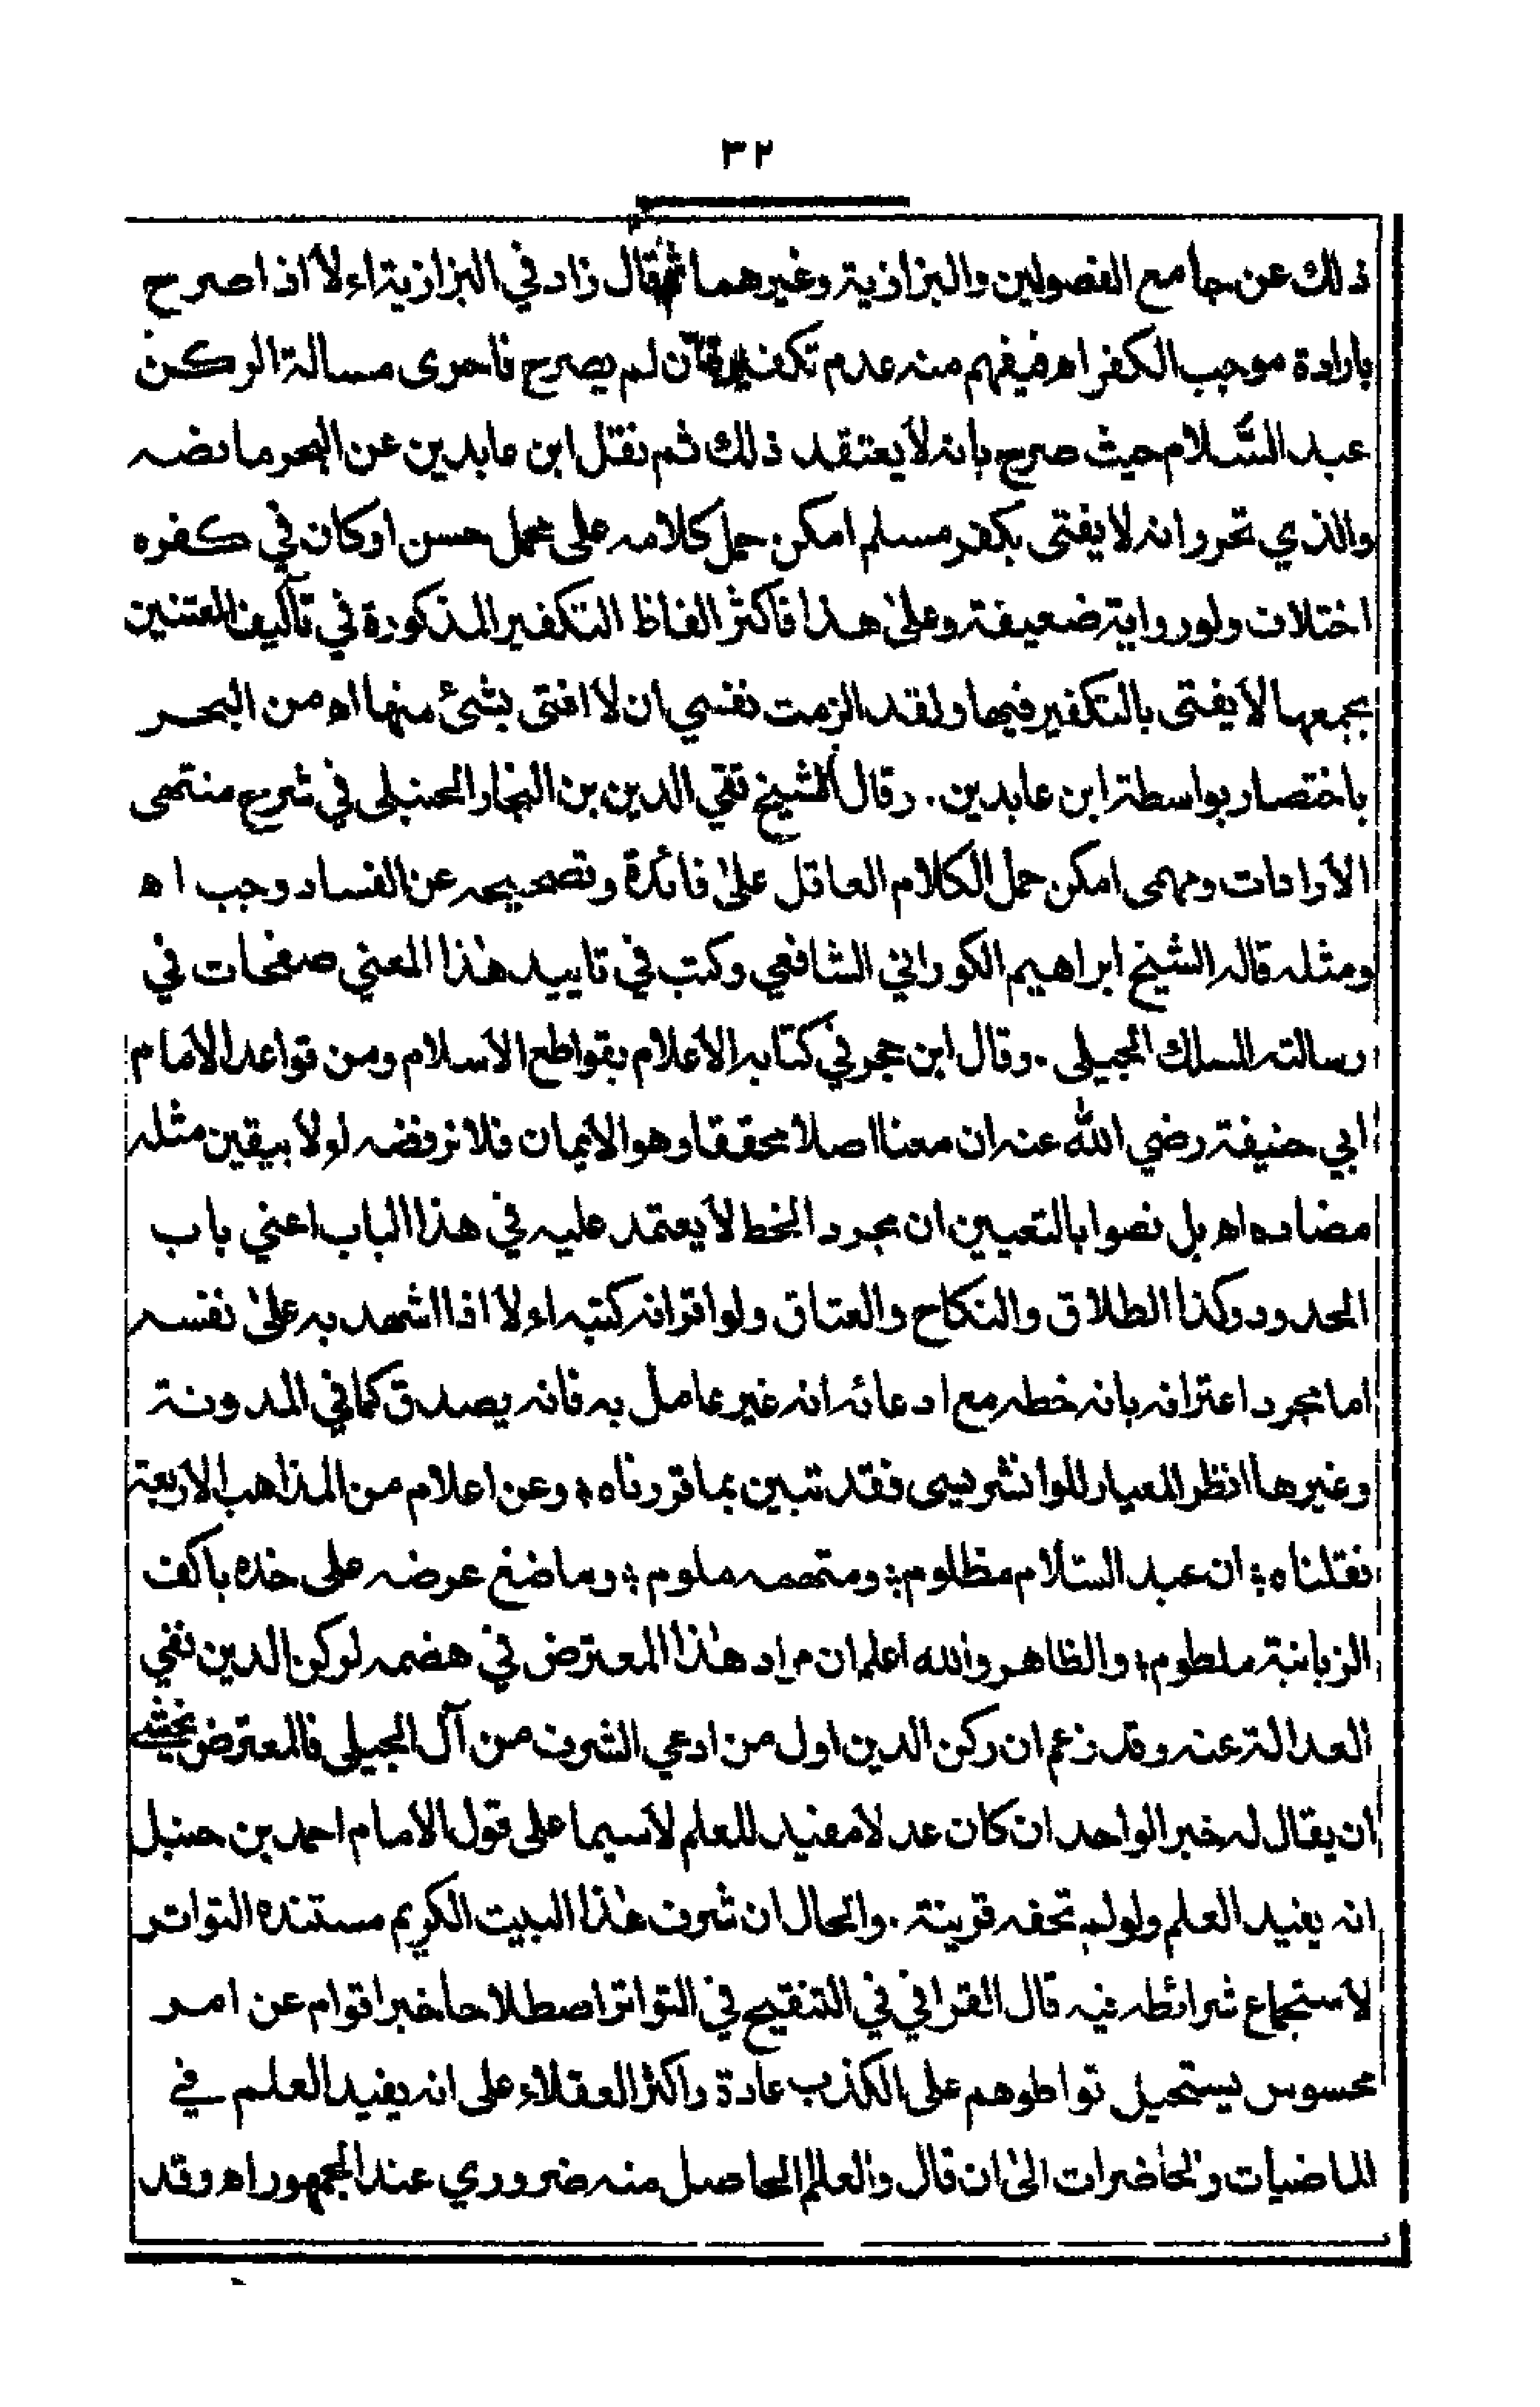 ٣٢
ذلك عن جامع الفصولين والبزازية وغيرهما ثم قال زاد في البزازية اء لا اذا صرح
بارادة موجب الكفر اھ فيفهم منه عدم تكفيره فان لم يصرح فاحرى مسالة الركن
عبد السّلام حيث صرح بانه لا يعتقد ذلك ثم نقل ابن عابدين عن البحر ما نصه
والذي تحرر انه لا يفتى بكفر مسلم امكن حمل كلامه على محمل حسن او كان في كفره
اختلاف ولو رواية ضعيفة وعلى هذا فاكثر الفاظ التكفير المذكورة في تآليف المعتنين
بجمعها لا يفتى بالتكفير فيها ولقد الزمت نفسي ان لا افتى بشئ منها اھ من البحر
باختصار بواسطة ابن عابدين . وقال الشيخ تقي الدين بن النجار الحنبلى في شرح منتهى
الارادات ومهمى امكن حمل الكلام العاقل على فائدة وتصحيحه عن الفساد وجب اھ
ومثله قاله الشيخ ابراهيم الكوراني الشافعي وكتب في تاييد هذا المعني صفحات في
رسالته السلك الجميلى . وقال ابن حجر في كتابه الاعلام بقواطع الاسلام ومن قواعد الامام
ابي حنيفة رضي الله عنه ان معنا اصلا محققا وهو الايمان فلا نرفضه لولا بيقين مثله
مضاده اھ بل نصوا بالتعيين ان مجرد الخط لا يعتمد عليه في هذا الباب اعني باب
الحدود وكذا الطلاق والنكاح والعتاق ولو اقر انه كتبه اء لا اذا اشهد به على نفسه
اما بمجرد اعترافه بانه خطه مع ادعائه انه غير عامل به فانه يصدق كما في المدونة
وغيرها انظر المعيار للوانشريسى فقد تبين بما قررناه ؛ وعن اعلام من المذاهب الاربعة
نقلناه ؛ ان عبد السّلام مظلوم ؛ ومتهمه ملوم ؛ وماضغ عرضه على خده باكف
الزبانية ملطوم ؛ والظاهر والله اعلم ان مراد هذا المعترض في هضمه لركن الدين نفي
العدالة عنه وقد زعم ان ركن الدين اول من ادعي الشرف من آل الجيلى فالمعترض يخشے
ان يقال له خبر الواحد ان كان عدلا مفيد للعلم لاسيما على قول الامام احمد بن حنبل
انه يفيد العلم ولو لم تحفه قرينة . والحال ان شرف هذا البيت الكريم مستنده التواتر
لاستجماع شرائطه فيه قال القرافي في التنقيح في التواتر اصطلاحا خبر اقوام عن امر
محسوس يستحيل تواطوهم على الكذب عادة واكثر العقلاء على انه يفيد العلم في
الماضيات والحاضرات الى ان قال والعلم الحاصل منه ضروري عند الجمهور اھ وقد